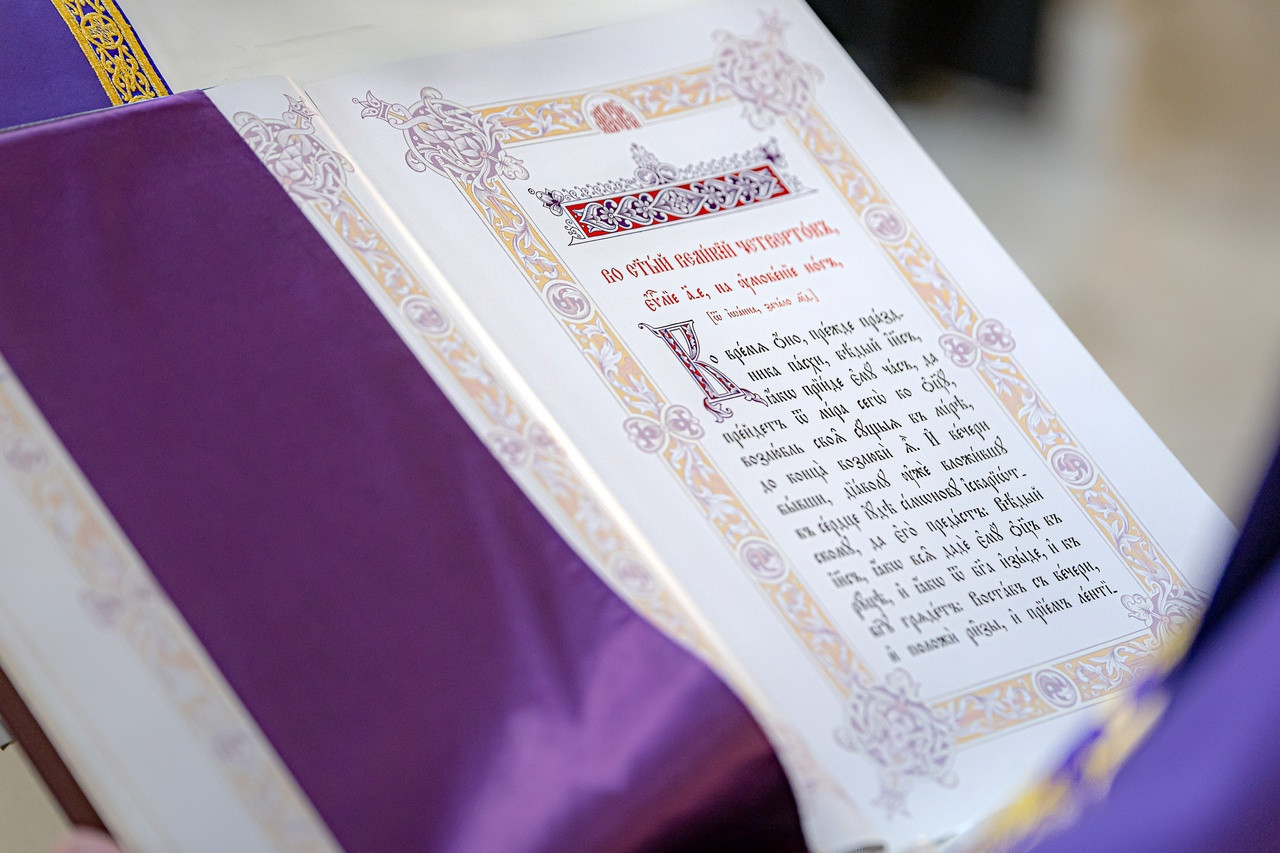 во ст҃ы́й вели́кїй четверто́къ,
є҆ѵⷢ҇лїе а҃-е, на ᲂу҆мове́нїе но́гъ,
[ѿ і҆ѡа́нна, зача́ло м҃д]
Во вре́мѧ ѻ҆́но, пре́жде пра́зд-
ника па́схи, вѣ́дый і҆и҃съ,
ꙗ҆́кѡ прїи́де є҆мꙋ̀ ча́съ, да
пре́йдетъ ѿ мі́ра сегѡ̀ ко ѻ҆ц҃ꙋ̀,
возлю́бль своѧ̑ сꙋ́щыѧ въ мі́рѣ,
до конца̀ возлюбѝ и҆̀хъ. И҆ ве́чери
бы́вшей, дїа́волꙋ ᲂу҆жѐ вложи́вшꙋ
въ се́рдце і҆ꙋ́дѣ сі́мѡновꙋ і҆скарїѡ́т-
скомꙋ, да є҆го̀ преда́стъ: Вѣ́дый
і҆и҃съ, ꙗ҆́кѡ всѧ̑ дадѐ є҆мꙋ̀ ѻ҆ц҃ъ въ
рꙋ́цѣ, и҆ ꙗ҆́кѡ ѿ бг҃а и҆зы́де, и҆ къ
бг҃ꙋ грѧде́тъ: Воста́въ съ ве́чери,
и҆ положѝ ри̑зы, и҆ прїе́мъ ле́нтї-